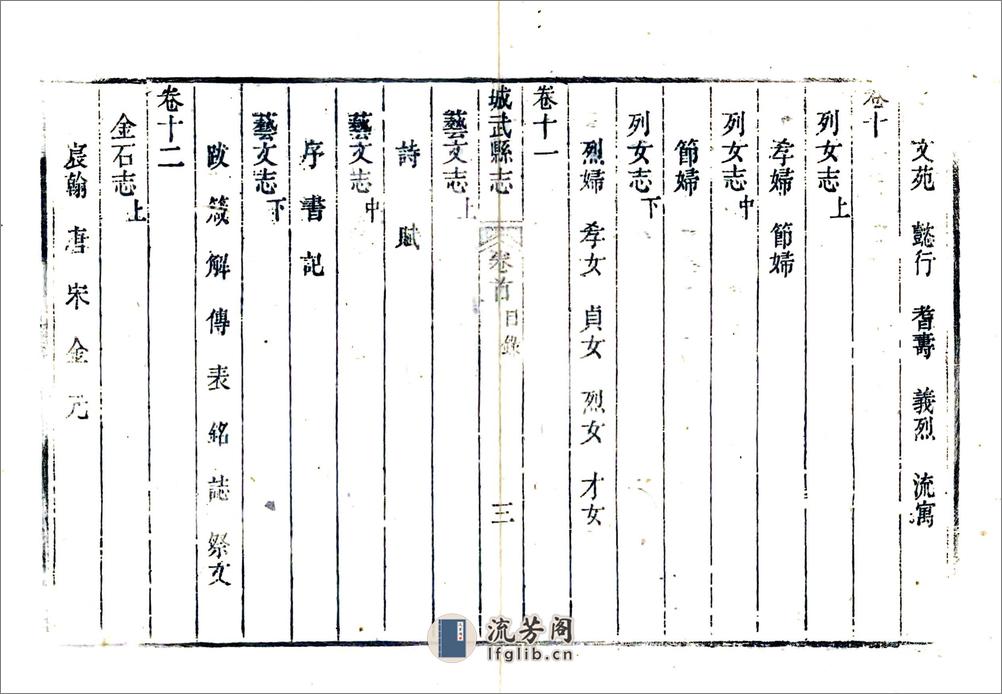 文苑 懿行 耆壽 義烈 流寓
卷十
列女志上
孝婦 節婦
列女志中
節婦
列女志下
烈婦 孝女 貞女 烈女 才女
卷十一
城武縣志 卷首 目錄 三
藝文志上
詩 賦
藝文志中
序 書 記
藝文志下
跋 箴 解 傳 表 銘 誌 祭文
卷十二
金石志上
宸翰 唐 宋 金 元
流芳阁
lfglib.cn